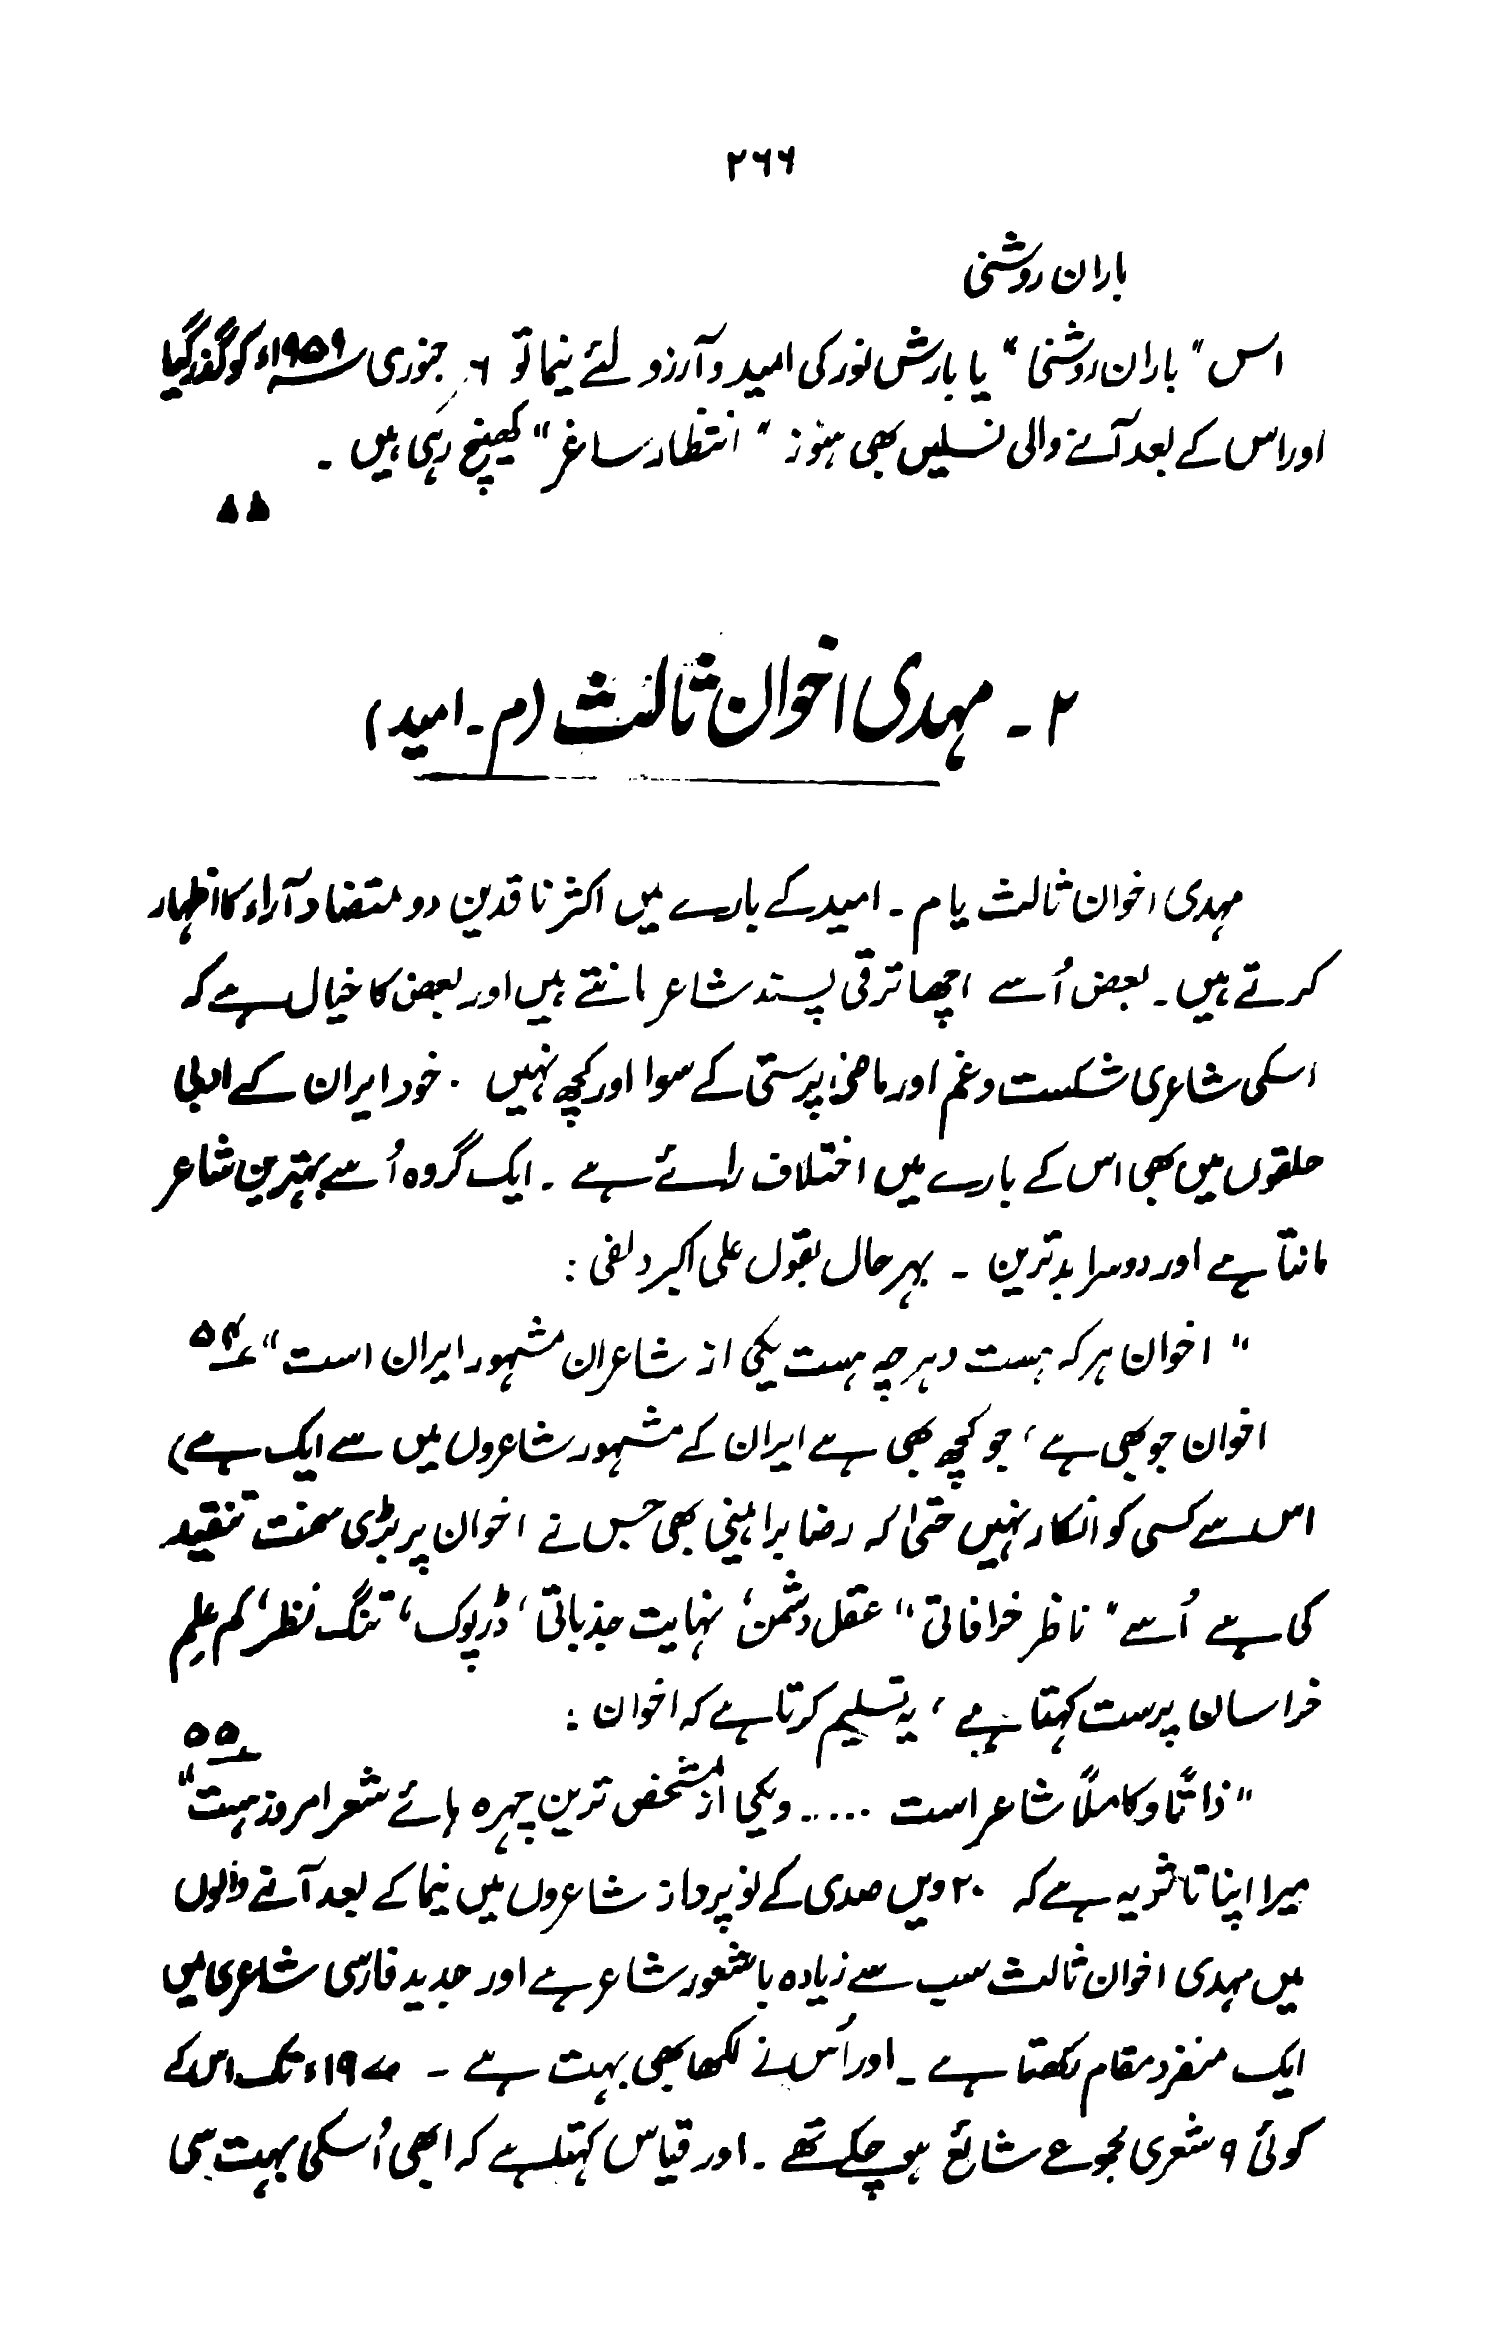 ۲۶۶
باران روشنی
اس "باران روشنی" یا بارش نور کی امید و آرزو لئے نیما تو ۶ جنوری ۱۹۵۹ء کو گذر گیا
اور اس کے بعد آنے والی نسلیں بھی ہنوز "انتظار ساغر" کھینچ رہی ہیں ۔
۲ ۔ مہدی اخوان ثالث (م ۔ امید)
مہدی اخوان ثالث یا م ۔ امید کے بارے میں اکثر ناقدین دو متضاد آراء کا اظہار
کرتے ہیں ۔ بعض اُسے اچھا ترقی پسند شاعر مانتے ہیں اور بعض کا خیال ہے کہ
اسکی شاعری شکست و غم اور ماضی پرستی کے سوا اور کچھ نہیں ۔ خود ایران کے ادبی
حلقوں میں بھی اس کے بارے میں اختلاف رائے ہے ۔ ایک گروہ اُسے بہترین شاعر
مانتا ہے اور دوسرا بدترین ۔ بہر حال بقول علی اکبر دلفی :
"اخوان ہر کہ ہست و ہر چہ ہست یکی از شاعران مشہور ایران است" ۵۴؎
اخوان جو بھی ہے ، جو کچھ بھی ہے ایران کے مشہور شاعروں میں سے ایک ہے)
اس سے کسی کو انکار نہیں حتیٰ کہ رضا براہینی بھی جس نے اخوان پر بڑی سخت تنقید
کی ہے اُسے "ناظر خرافاتی" عقل دشمن ، نہایت جذباتی ، ڈرپوک ، تنگ نظر ، کم علم
خراسان پرست کہتا ہے ، یہ تسلیم کرتا ہے کہ اخوان :
"ذاتاً و کاملاً شاعر است ..... و یکی از مشخص ترین چہرہ ہائے شعر امروز ہست" ۵۵؎
میرا اپنا تاثر یہ ہے کہ ۲۰ ویں صدی کے نو پرداز شاعروں میں نیما کے بعد آنے والوں
میں مہدی اخوان ثالث سب سے زیادہ باشعور شاعر ہے اور جدید فارسی شاعری میں
ایک منفرد مقام رکھتا ہے ۔ اور اُس نے لکھا بھی بہت ہے ۔ ۱۹۷۰ء تک اس کے
کوئی ۹ شعری مجموعے شائع ہو چکے تھے ۔ اور قیاس کہتا ہے کہ ابھی اُسکی بہت سی